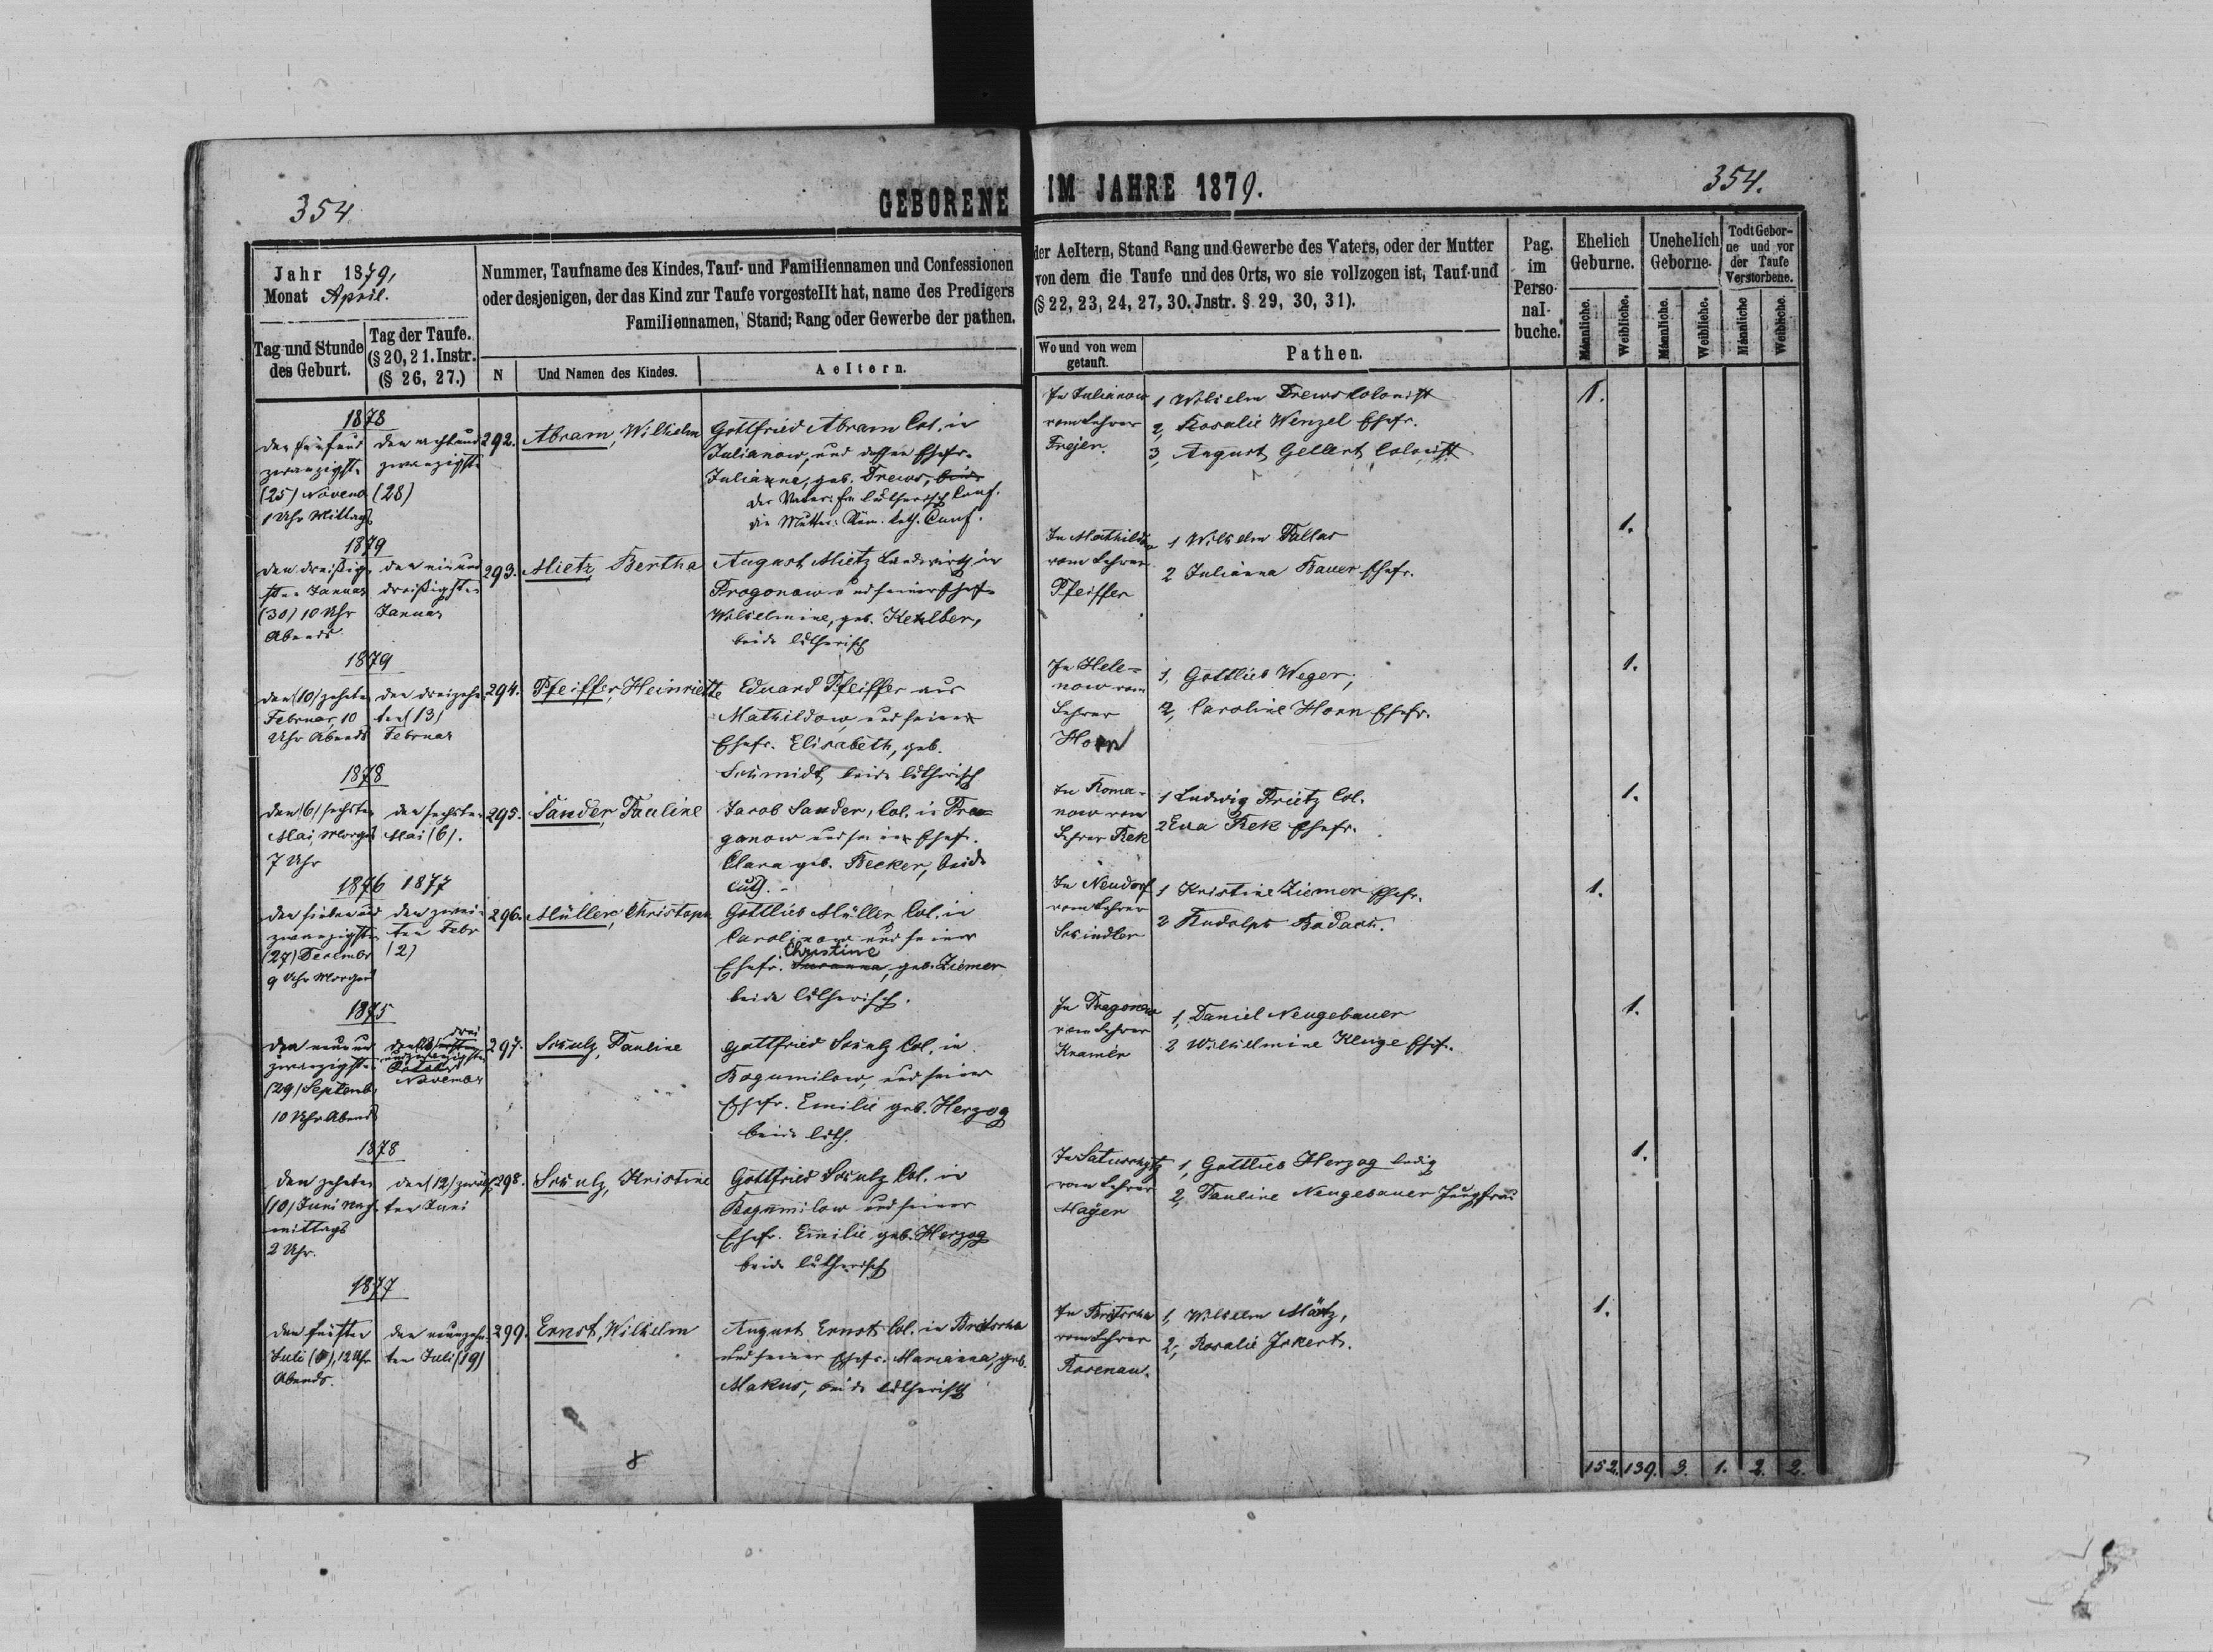 354.
GEBORENE IM JAHRE 1879.
354.
Jahr 1879,
Monat April.
Tag und Stunde
des Geburt.
Tag der Taufe.
(§ 20, 21. Instr.
(§ 26, 27.)
Nummer, Taufname des Kindes, Tauf- und Familiennamen und Confessionen
oder desjenigen, der das Kind zur Taufe vorgestellt hat, name des Predigers
Familiennamen, Stand; Rang oder Gewerbe der pathen.
N
Und Namen des Kindes.
Aeltern.
der Aeltern, Stand Rang und Gewerbe des Vaters, oder der Mutter
von dem die Taufe und des Orts, wo sie vollzogen ist, Tauf-und
(§ 22, 23, 24, 27, 30. Jnstr. § 29, 30, 31).
Wo und von wem
getauft.
Pathen.
Pag.
im
Perso-
nal-
buche.
Ehelich
Geburne.
Unehelich
Geborne.
Todt Gebor-
ne und vor
der Taufe
Verstorbene.
Männliche.
Weibliche.
Männliche.
Weibliche.
Männliche
Weibliche.
1878
den fünfund
zwanzigste
(25) Novemb
1 Uhr Mittags
den achtund
zwanzigste
(28)
292.
Abram, Wilhelm
Gottfried Abram Col. in
Julianow, und dessen Ehefr.
Julianne, geb. Drews, beide
der Vater: Ev. lutherisch Conf.
die Mutter: Röm. kath. Conf.
In Julianow
vom Lehrer
Frejer.
1 Wilhelm Drews Colonist
2, Rosalie Wenzel Ehefr.
3, August Gellert Colonist
1.
1879
den dreißig
sten Januar
(30) 10 Uhr
Abends
den einund
dreißigsten
Januar
293.
Mietz, Bertha
August Mietz Landwirth in
Progonow und seiner Ehefr.
Wilhelmine, geb. Kehlber,
beide lutherisch
In Mathildow
vom Lehrer
Pfeiffer
1 Wilhelm Fallas
2 Julianna Bauer Ehefr.
1.
1879
den (10) zehnten
Februar, 10
Uhr Abends
den dreizehn
ten (13)
Februar
294.
Pfeiffer, Heinriette
Eduard Pfeiffer aus
Mathildow, und seiner
Ehefr. Elisabeth, geb.
Schmidt, beide lutherisch
In Hele-
now vom
Lehrer
Horn
1, Gottlieb Weger,
2, Caroline Horn Ehefr.
1.
1878
den (6) sechsten
Mai, Morgens
7 Uhr
den sechsten
Mai (6).
295.
Sander, Pauline
Jacob Sander, Col. in Pro-
gonow und seiner Ehefr.
Clara geb. Becker, beide
luth.
In Roma-
now vom
Lehrer Rek
1 Ludwig Trietz Col.
2 Eva Rek Ehefr.
1.
1876 1877
den sieben und
zwanzigsten
(27) Decembr
9 Uhr Morgens
den zwei-
ten Febr
(2)
296.
Müller, Christoph
Gottlieb Müller Col. in
Carolinow und seiner
Christine
Ehefr. Susanna, geb. Ziemer
beide lutherisch.
In Neudorf
vom Lehrer
Schindler
1 Kristine Ziemer Ehefr.
2 Rudolph Badach.
1.
1875
den neunund
zwanzigsten
(29) Septemb.
10 Uhr Abends
drei
undzwanzigsten
October
November
297.
Schulz, Pauline
Gottfried Schulz Col. in
Bogumilow, und seiner
Ehefr. Emilie geb. Herzog
beide luth.
In Progonow
vom Lehrer
Kramer
1, Daniel Neugebauer
2 Wilhelmine Kluge Ehefr.
1.
1878
den zehnten
(10) Juni nach
mittags
2 Uhr.
den (12) zwölf
ten Juni
298.
Schulz, Kristine
Gottfried Schulz Col. in
Bogumilow und seiner
Ehefr. Emilie geb. Herzog
beide lutherisch
vom Lehrer
Mayer
1, Gottlieb Herzog ledig
2, Pauline Neugebauer Jungfrau
1.
1877
den fünften
Juli (5), 12 Uhr
Abends.
den neunzehn
ten Juli (19)
299.
Ernst, Wilhelm
August Ernst Col. in Bretscha
und seiner Ehefr. Marianna, geb.
Makus, beide lutherisch
In Bretscha
vom Lehrer
Rosenau.
1, Wilhelm Märtz,
2, Rosalie Jekert.
1.
8
152. 139. 3. 1. 2. 2.